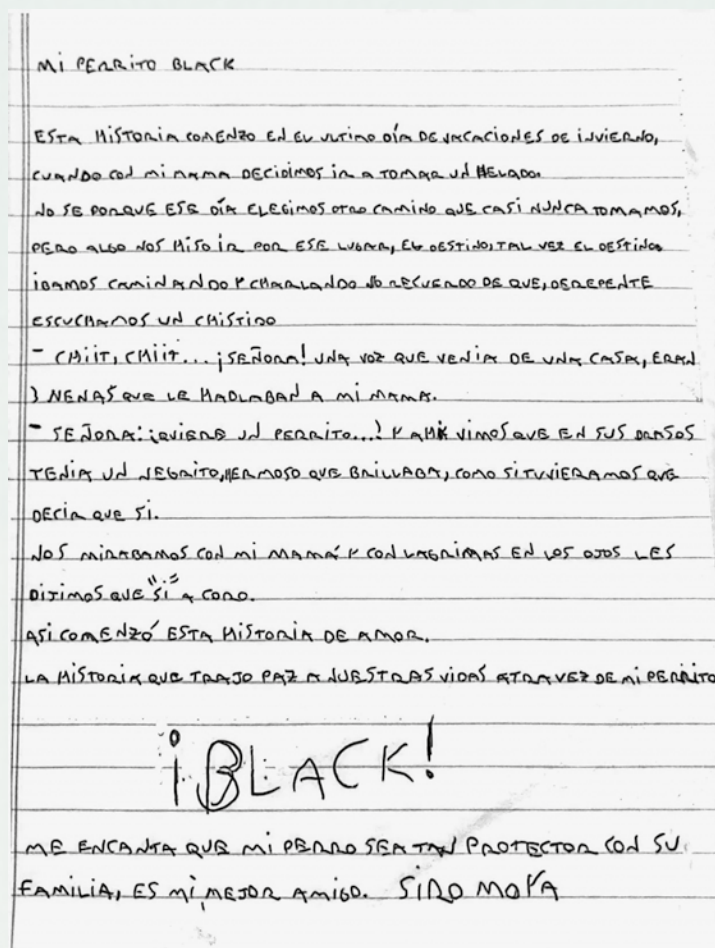 MI PERRITO BLACK
ESTA HISTORIA COMENZO EN EL ULTIMO DÍA DE VACACIONES DE INVIERNO,
CUANDO CON MI MAMA DECIDIMOS IR A TOMAR UN HELADO.
NO SE PORQUE ESE DÍA ELEGIMOS OTRO CAMINO QUE CASI NUNCA TOMAMOS,
PERO ALGO NOS HISO IR POR ESE LUGAR, EL DESTINO, TAL VEZ EL DESTINO.
IBAMOS CAMINANDO Y CHARLANDO NO RECUERDO DE QUE, DEREPENTE
ESCUCHAMOS UN CHISTIDO
- CHIIT, CHIIT... ¡SEÑORA! UNA VOZ QUE VENIA DE UNA CASA, ERAN
3 NENAS QUE LE HABLABAN A MI MAMA.
- SEÑORA: ¡QUIERE UN PERRITO...! Y AHI VIMOS QUE EN SUS BRASOS
TENIA UN NEGRITO, HERMOSO QUE BRILLABA, COMO SI TUVIERAMOS QUE
DECIR QUE SI.
NOS MIRABAMOS CON MI MAMÁ Y CON LAGRIMAS EN LOS OJOS LES
DIJIMOS QUE "SI" A CORO.
ASI COMENZÓ ESTA HISTORIA DE AMOR.
LA HISTORIA QUE TRAJO PAZ A NUESTRAS VIDAS ATRAVEZ DE MI PERRITO
¡BLACK!
ME ENCANTA QUE MI PERRO SEA TAN PROTECTOR CON SU
FAMILIA, ES MI MEJOR AMIGO. SIRO MOYA